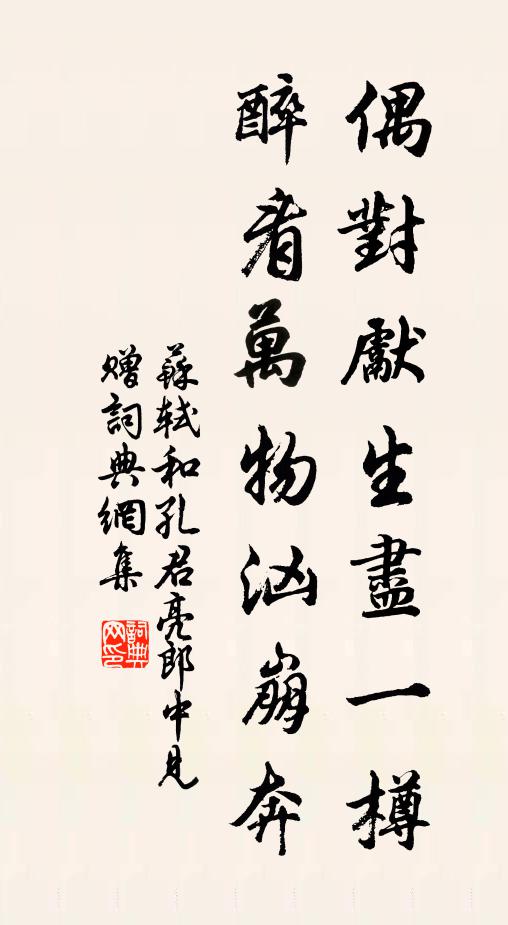 偶對獻生盡一樽
醉看萬物洶崩奔
蘇軾和孔君亮郎中見
贈詞典網集
詞典網印